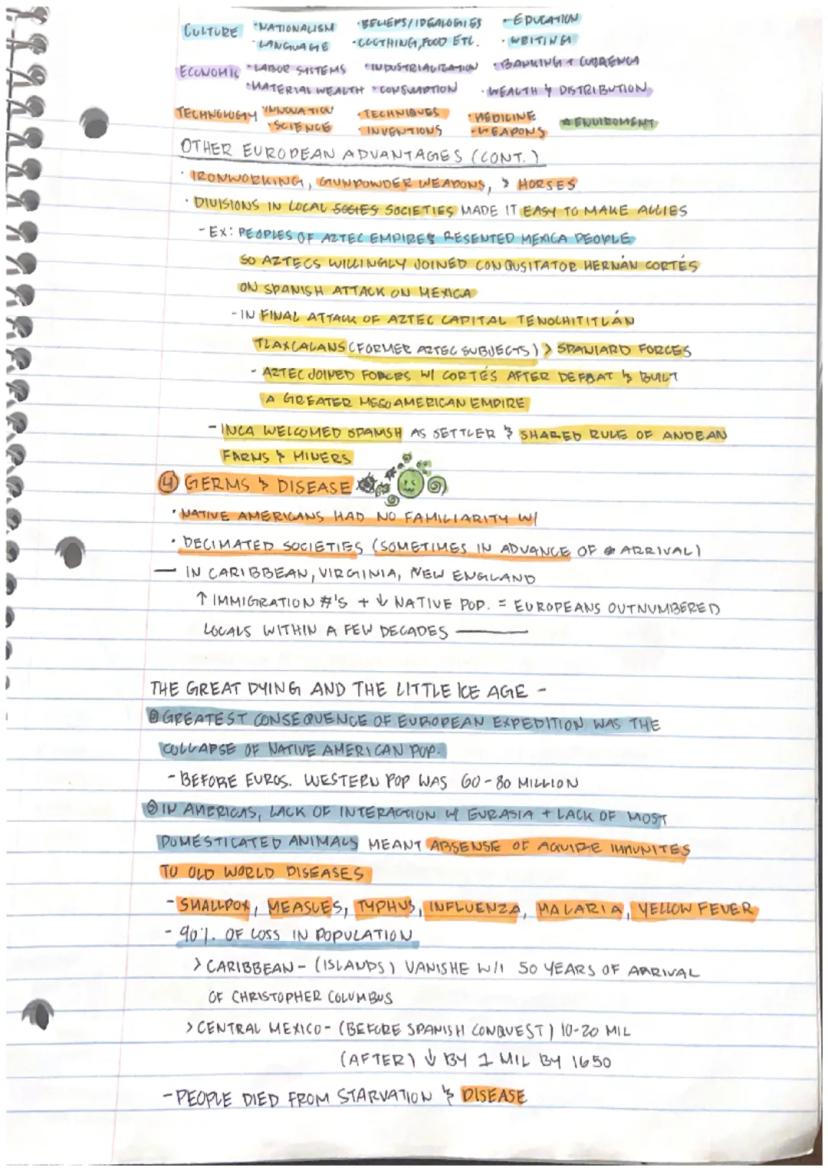 CULTURE · NATIONALISM · BELIEFS/IDEALOGIES · EDUCATION
· LANGUAGE · CLOTHING, FOOD ETC. · WRITING
ECONOMIC · LABOR SYSTEMS · INDUSTRIALIZATION · BANKING + CURRENCY
· MATERIAL WEALTH · CONSUMPTION · WEALTH & DISTRIBUTION
TECHNOLOGY · INNOVATION · TECHNIQUES · MEDICINE
· SCIENCE · INVENTIONS · WEAPONS * ENVIROMENT
OTHER EUROPEAN ADVANTAGES (CONT.)
· IRONWORKING, GUNPOWDER WEAPONS, & HORSES
· DIVISIONS IN LOCAL SOCIES SOCIETIES MADE IT EASY TO MAKE ALLIES
- EX: PEOPLES OF AZTEC EMPIRES RESENTED MEXICA PEOPLE
SO AZTECS WILLINGLY JOINED CONQUSITATOR HERNÁN CORTÉS
ON SPANISH ATTACK ON MEXICA
- IN FINAL ATTACK OF AZTEC CAPITAL TENOCHITITLÁN
TLAXCALANS (FORMER AZTEC SUBJECTS) > SPANIARD FORCES
- AZTEC JOINED FORCES W/ CORTÉS AFTER DEFEAT & BUILT
A GREATER MESOAMERICAN EMPIRE
- INCA WELCOMED SPANISH AS SETTLER & SHARED RULE OF ANDEAN
FARMS & MINERS
④ GERMS & DISEASE
· NATIVE AMERICANS HAD NO FAMILIARITY W/
· DECIMATED SOCIETIES (SOMETIMES IN ADVANCE OF ARRIVAL)
— IN CARIBBEAN, VIRGINIA, NEW ENGLAND
↑ IMMIGRATION #'S + ↓ NATIVE POP. = EUROPEANS OUTNUMBERED
LOCALS WITHIN A FEW DECADES —
THE GREAT DYING AND THE LITTLE ICE AGE -
GREATEST CONSEQUENCE OF EUROPEAN EXPEDITION WAS THE
COLLAPSE OF NATIVE AMERICAN POP.
- BEFORE EUROS. WESTERN POP WAS 60-80 MILLION
IN AMERICAS, LACK OF INTERACTION W/ EURASIA + LACK OF MOST
DOMESTICATED ANIMALS MEANT ABSENSE OF AQUIRE IMMUNITES
TO OLD WORLD DISEASES
- SMALLPOX, MEASLES, TYPHUS, INFLUENZA, MALARIA, YELLOW FEVER
- 90% OF LOSS IN POPULATION
> CARIBBEAN - (ISLANDS) VANISHE W/I 50 YEARS OF ARRIVAL
OF CHRISTOPHER COLUMBUS
> CENTRAL MEXICO - (BEFORE SPANISH CONQUEST) 10-20 MIL
(AFTER) ↓ BY 1 MIL BY 1650
- PEOPLE DIED FROM STARVATION & DISEASE